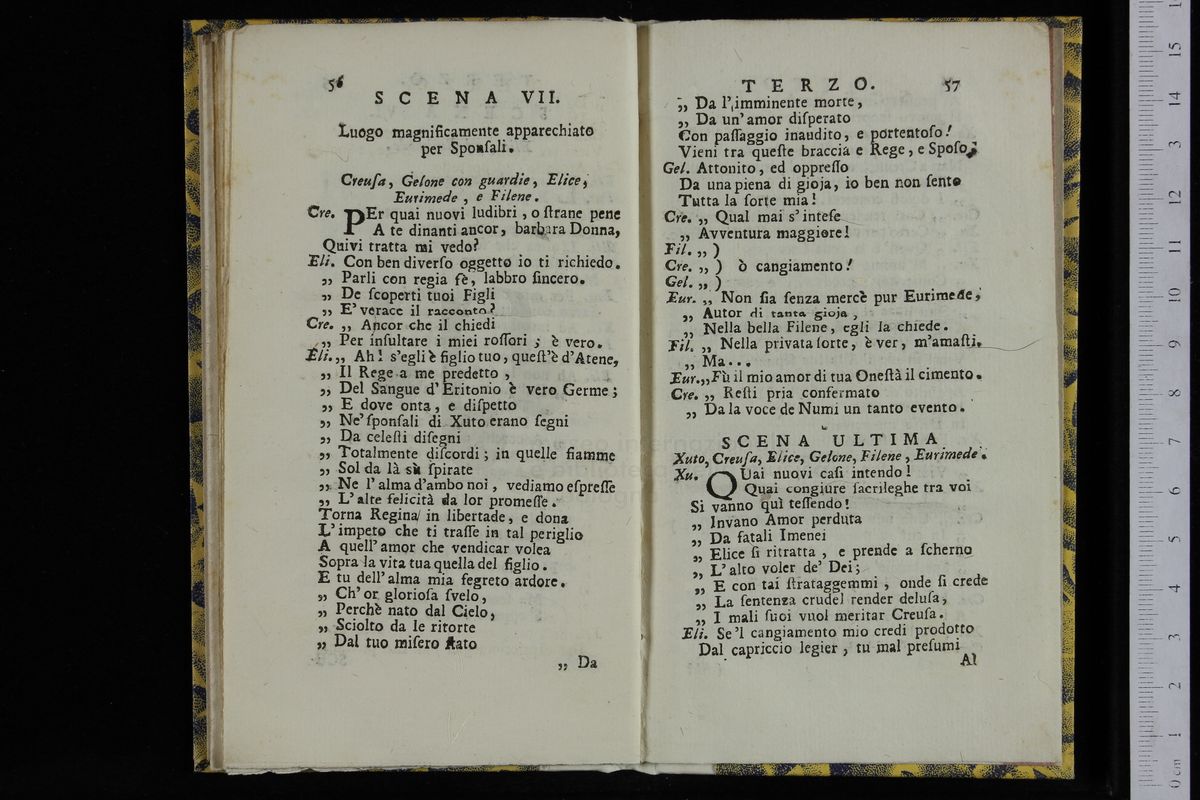 56
SCENA VII.
Luogo magnificamente apparechiato
per Sponſali.
Creuſa, Gelone con guardie, Elice,
Eurimede, e Filene.
Cre. PEr quai nuovi ludibri, o ſtrane pene
A te dinanti ancor, barbara Donna,
Quivi tratta mi vedo?
Eli. Con ben diverſo oggetto io ti richiedo.
„ Parli con regia fè, labbro ſincero.
„ De ſcoperti tuoi Figli
„ E' verace il racconto?
Cre. „ Ancor che il chiedi
„ Per inſultare i miei roſſori; è vero.
Eli. „ Ah! s'egli è figlio tuo, queſt'è d'Atene,
„ Il Rege a me predetto,
„ Del Sangue d'Eritonio è vero Germe;
„ E dove onta, e diſpetto
„ Ne' ſponſali di Xuto erano ſegni
„ Da celeſti diſegni
„ Totalmente diſcordi; in quelle fiamme
„ Sol da là sù ſpirate
„ Ne l'alma d'ambo noi, vediamo eſpreſſe
„ L'alte felicità da lor promeſſe.
Torna Regina in libertade, e dona
L'impeto che ti traſſe in tal periglio
A quell'amor che vendicar volea
Sopra la vita tua quella del figlio.
E tu dell'alma mia ſegreto ardore.
„ Ch'or glorioſa ſvelo,
„ Perchè nato dal Cielo,
„ Sciolto da le ritorte
„ Dal tuo miſero ſtato
„ Da
TERZO. 57
„ Da l'imminente morte,
„ Da un'amor diſperato
Con paſſaggio inaudito, e portentoſo!
Vieni tra queſte braccia e Rege, e Spoſo.
Gel. Attonito, ed oppreſſo
Da una piena di gioja, io ben non ſento
Tutta la ſorte mia!
Cre. „ Qual mai s'inteſe
„ Avventura maggiore!
Fil. „ )
Cre. „ ) ò cangiamento!
Gel. „ )
Eur. „ Non ſia ſenza mercè pur Eurimede,
„ Autor di tanta gioja,
„ Nella bella Filene, egli la chiede.
Fil. „ Nella privata ſorte, è ver, m'amaſti.
„ Ma...
Eur. „ Fù il mio amor di tua Oneſtà il cimento.
Cre. „ Reſti pria confermato
„ Da la voce de Numi un tanto evento.
SCENA ULTIMA
Xuto, Creuſa, Elice, Gelone, Filene, Eurimede.
Xu. QUai nuovi caſi intendo!
Quai congiure ſacrileghe tra voi
Si vanno quì teſſendo!
„ Invano Amor perduta
„ Da fatali Imenei
„ Elice ſi ritratta, e prende a ſcherno
„ L'alto voler de' Dei;
„ E con tai ſtrataggemmi, onde ſi crede
„ La ſentenza crudel render deluſa,
„ I mali ſuoi vuol meritar Creuſa.
Eli. Se'l cangiamento mio credi prodotto
Dal capriccio legier, tu mal preſumi
Al